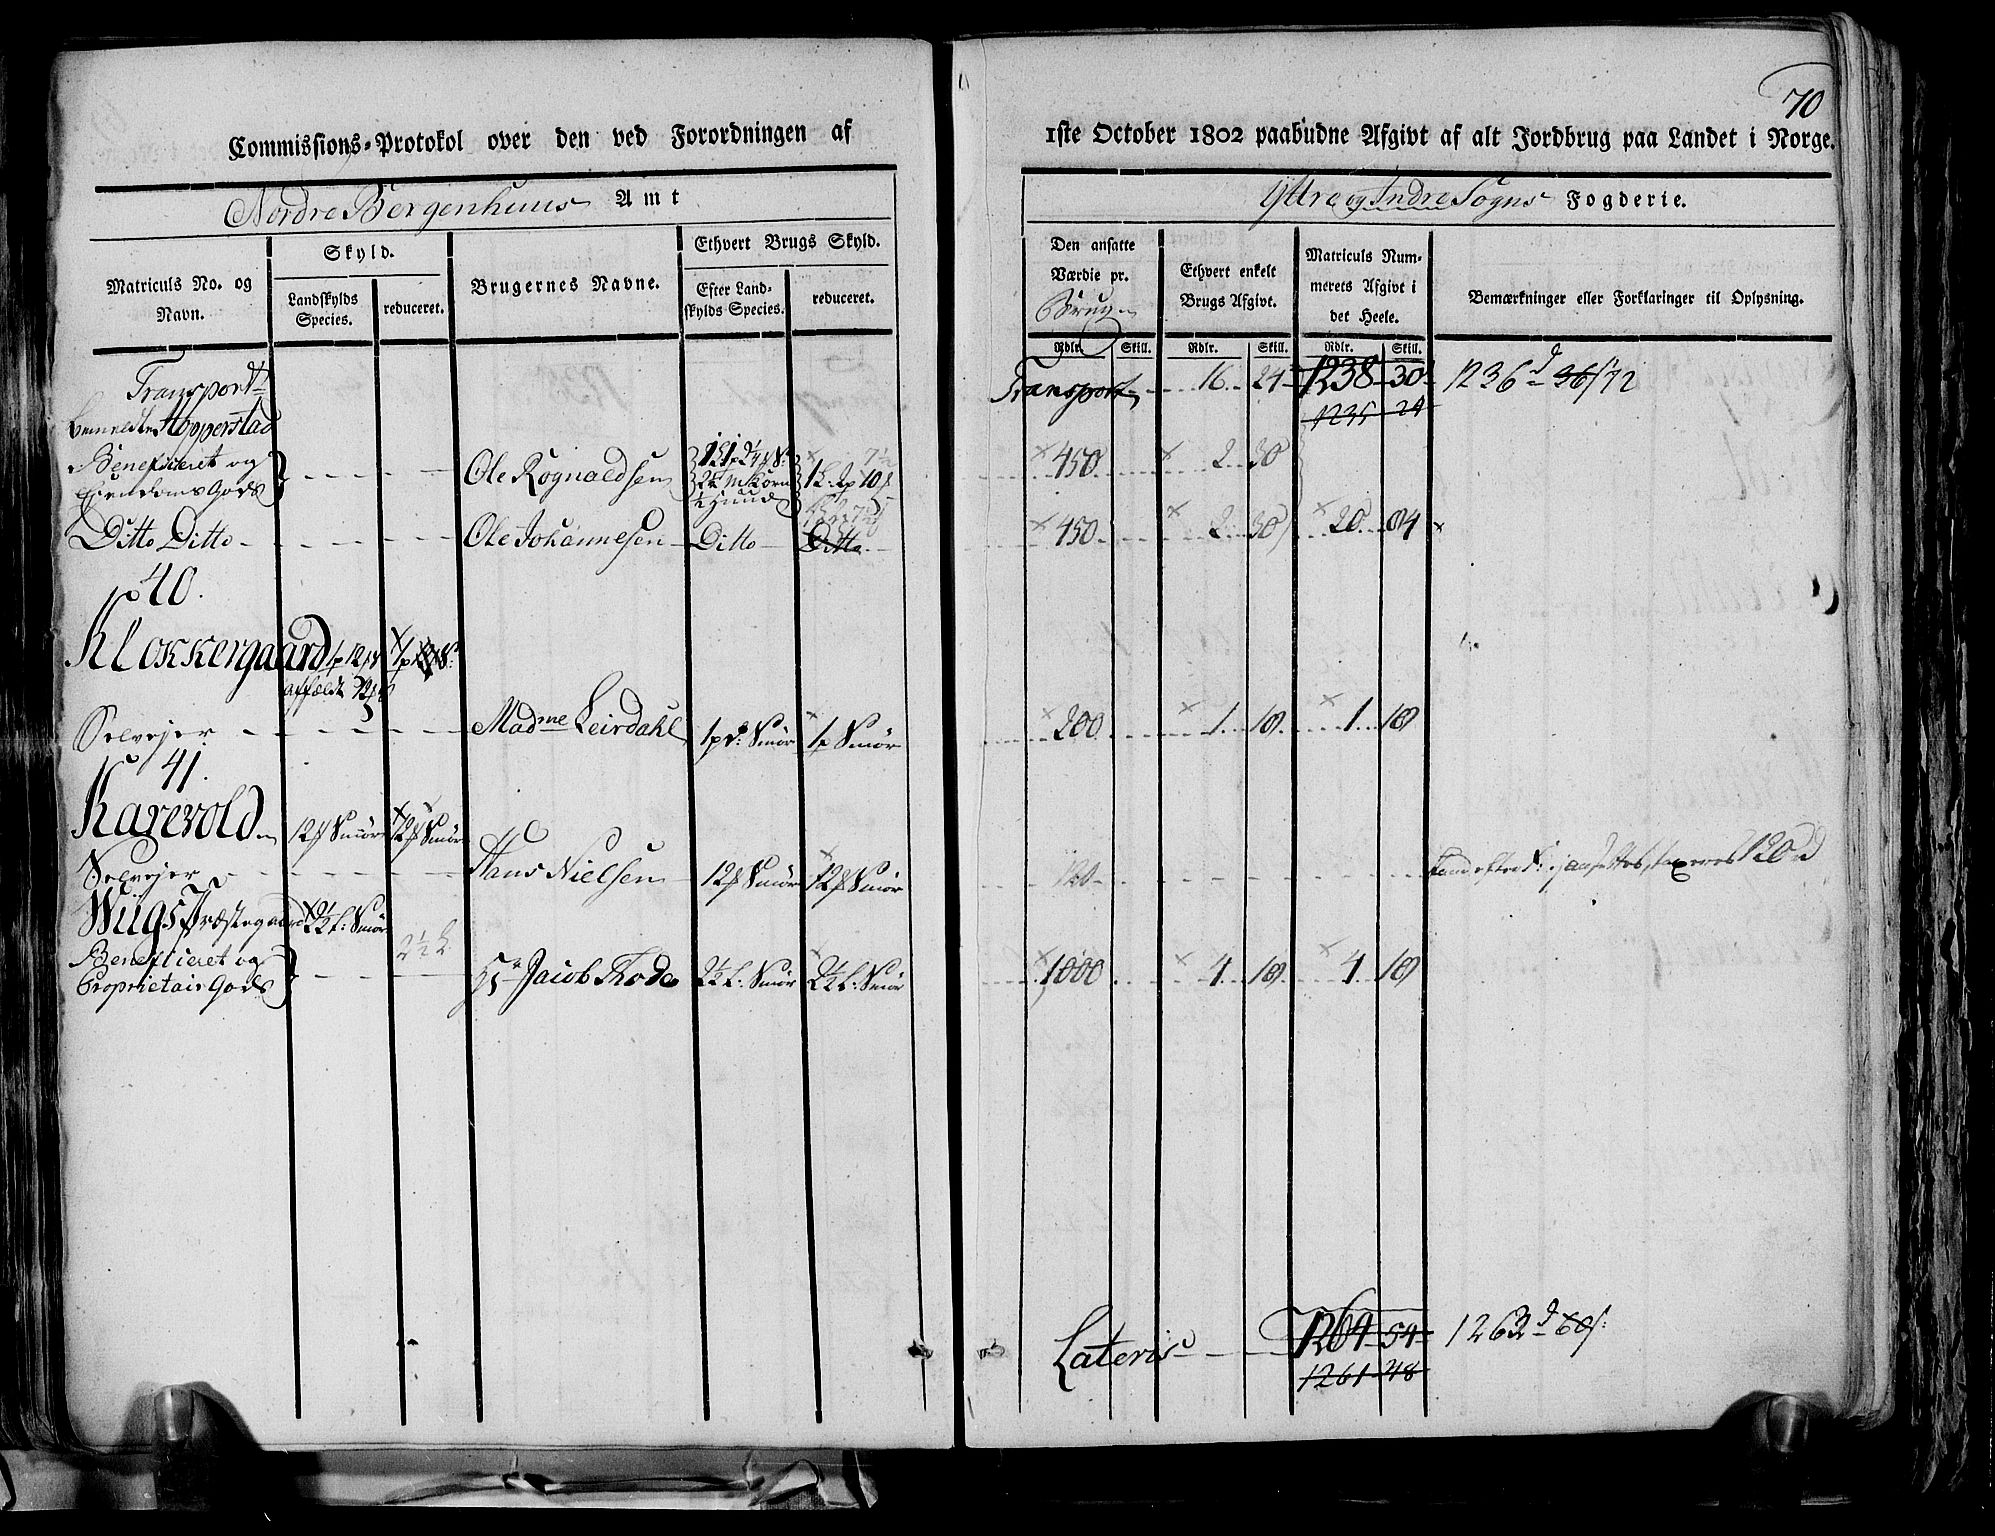 70
Commissions-Protokol over den ved Forordningen af
1ste October 1802 paabudne Afgivt af alt Jordbrug paa Landet i Norge.
Nordre Bergenhuus Amt
Yttre og Indre Sogns Fogderie.
Matriculs No. og Navn.
Skyld.
Landskylds Species.
reduceret.
Brugernes Navne.
Ethvert Brugs Skyld.
Efter Landskylds Species.
reduceret.
Den ansatte Værdie pr. Brug
Ethvert enkelt Brugs Afgivt.
Matriculs Nummerets Afgivt i det Heele.
Bemærkninger eller Forklaringer til Oplysning.
Rdlr. Skill. Rdlr. Skill. Rdlr. Skill.
Transport
Transport 16 24 1238 30 1236 d 36 72
1235 24
bemeldte Hopperstad
Beneficeret og
Eiendoms Gods
Ole Rognaldsen
450 2 30
Ditto Ditto
Ole Johannesen Ditto Ditto
450 2 30 20 84
40.
Klokkergaard 1p 12
affældt 12
Selvejer Madme Leirdahl 1pd: Smør 1p Smør
200 1 10 1 10
41.
Karevold 12 Smør 12 Smør
Selvejer Hans Nielsen 12 Smør 12 Smør
120 120 d
Wiigs Præstegaard 2½ L: Smør
2½ L
Beneficeret og
Proprietair Gods
Hr Jacob Thode 2½ L: Smør 2½ L: Smør
1000 4 10 4 10
Lateris 1264 54 1262 d 60
1261 48